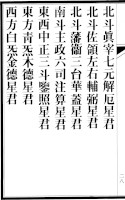 北斗眞宰七元解厄星君
北斗佐領左右輔弼星君
北斗藩衛三台華蓋星君
南斗主政六司注算星君
東西中正三斗鑒照星君
東方青炁木德星君
西方白炁金德星君